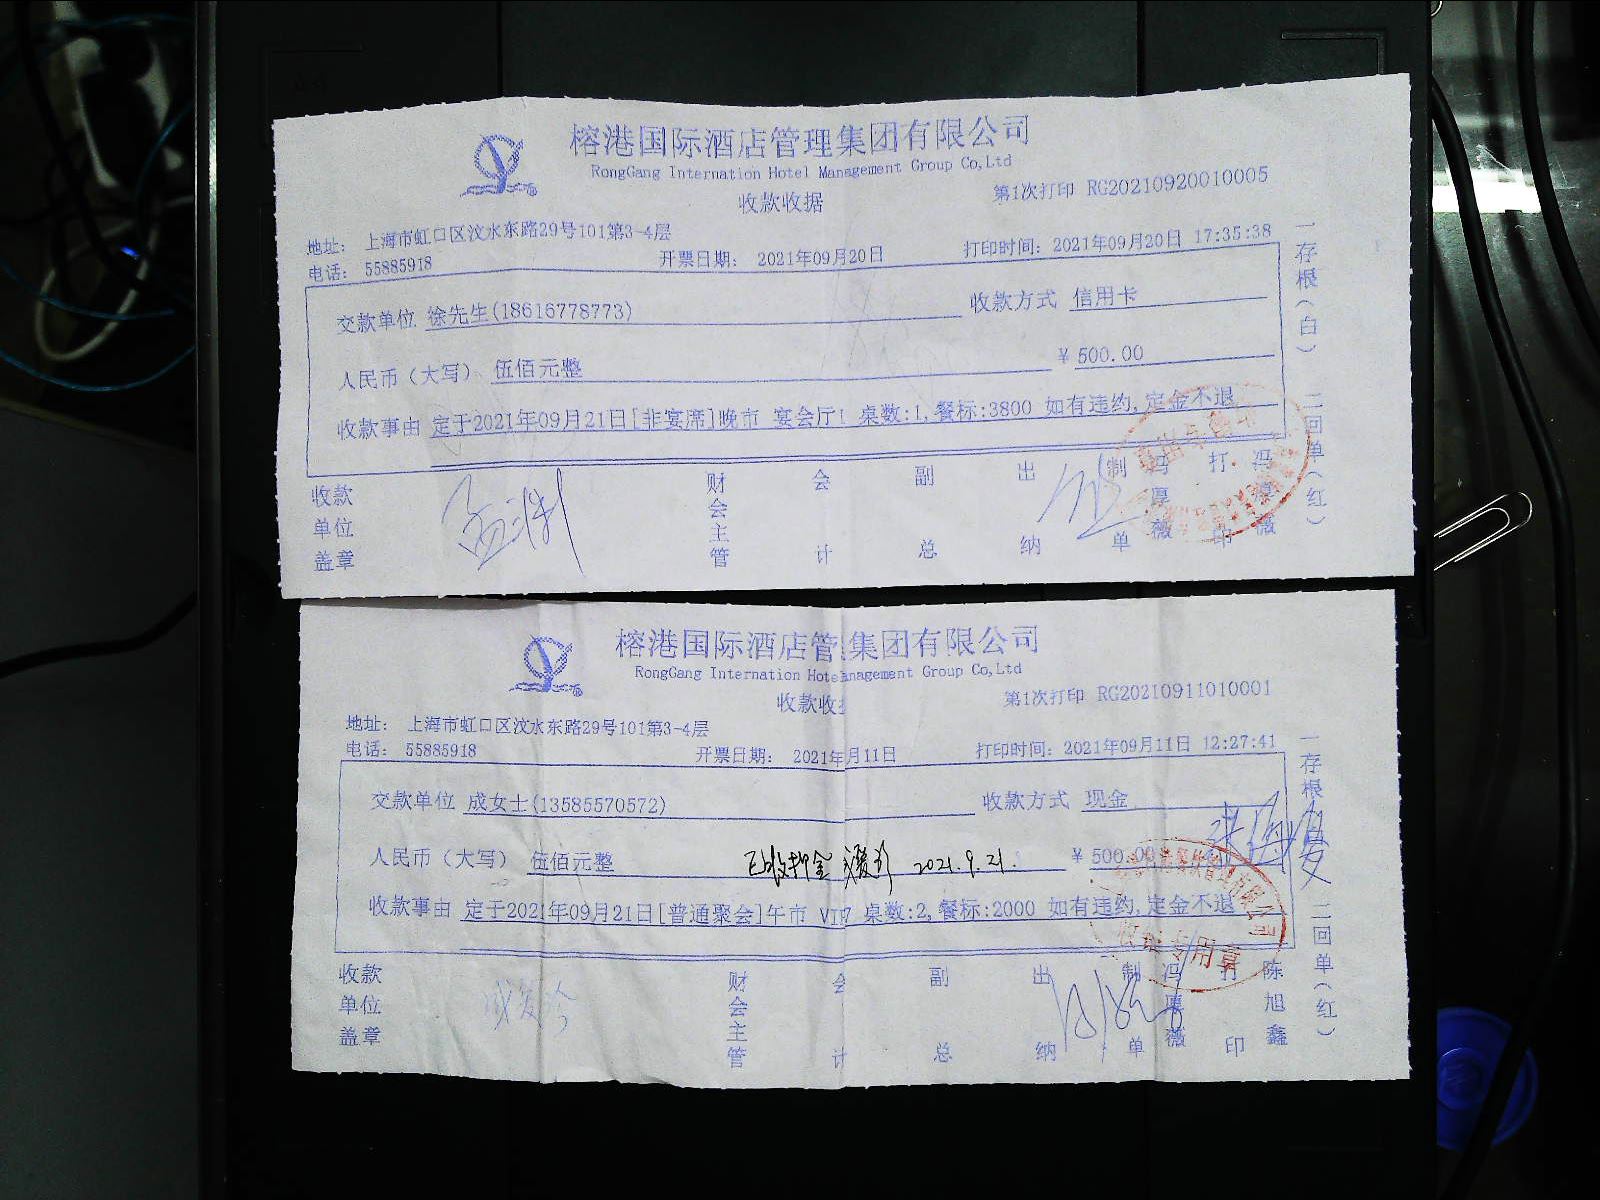 榕港国际酒店管理集团有限公司
RongGang Internation Hotel Management Group Co,Ltd
收款收据
第1次打印 RG20210920010005
地址: 上海市虹口区汶水东路29号101第3-4层
电话: 55885918
开票日期: 2021年09月20日
打印时间: 2021年09月20日 17:35:38
交款单位 徐先生(18616778773)
收款方式 信用卡
人民币（大写） 伍佰元整
¥ 500.00
收款事由 定于2021年09月21日[非宴席]晚市 宴会厅 桌数:1,餐标:3800 如有违约,定金不退
收款单位盖章
财会主管
会计
副总
出纳
制单 冯厚薇
打印 冯厚薇
一存根(白) 二回单(红)
榕港国际酒店管集团有限公司
RongGang Internation Hotelanagement Group Co,Ltd
收款收
第1次打印 RG20210911010001
地址: 上海市虹口区汶水东路29号101第3-4层
电话: 55885918
开票日期: 2021年月11日
打印时间: 2021年09月11日 12:27:41
交款单位 成女士(13585570572)
收款方式 现金
人民币（大写） 伍佰元整
已收押金 成爱珍 2021.9.21.
¥ 500.00
收款事由 定于2021年09月21日[普通聚会]午市 VIP 桌数:2,餐标:2000 如有违约,定金不退
专用章
收款单位盖章
成爱珍
财会主管
会计
副总
出纳
制单 冯厚薇
打印 陈旭鑫
一存根 二回单(红)